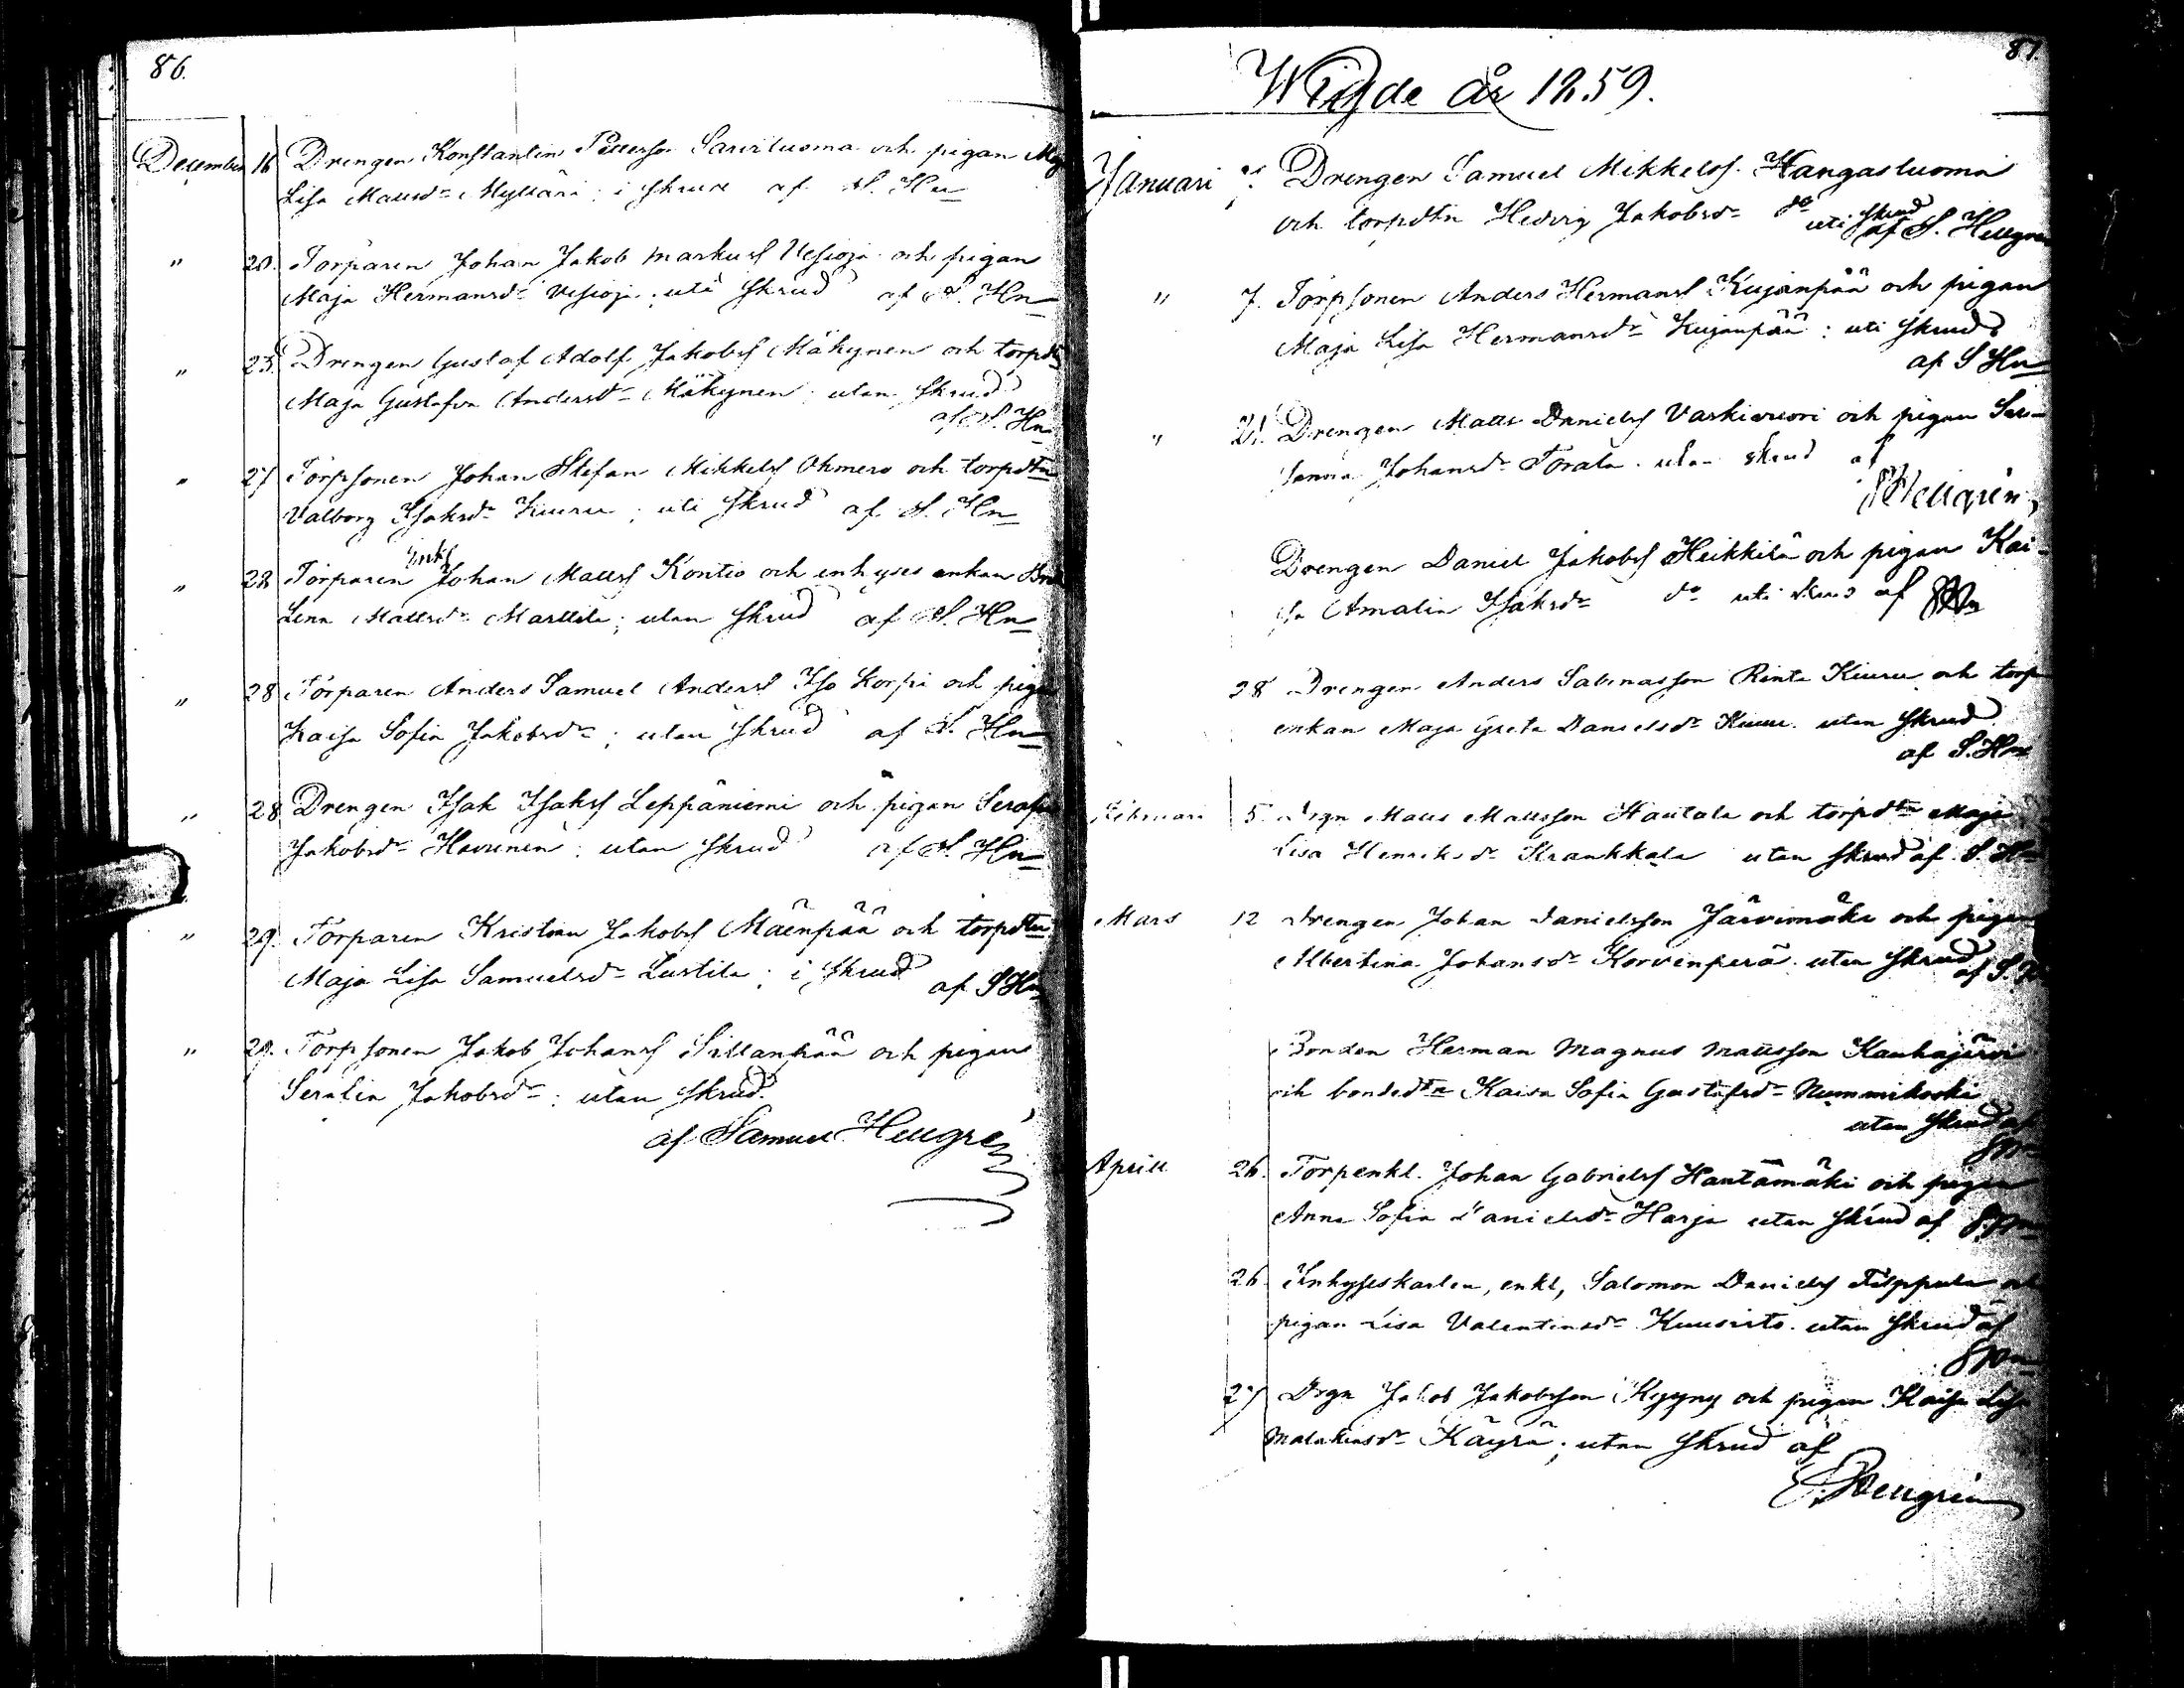 86.
December 16 Drengen Konstantin Pettersson Sarviluoma och pigan Maj
Lisa Mattsdr Myllari; i skrud af S. Hn
" 20. Torparen Johan Jakob Markuss Vesioja och pigan
Maja Hermansdr Vesioja; uti skrud af S. Hn
" 25. Drengen Gustaf Adolf Jakobss Mäkynen och torpdtr
Maja Gustafva Andersdr Mäkynen; utan skrud
af S. Hn
" 27 Torpsonen Johan Stefan Mikkelss Ohmero och torpdtn
Valborg Isaksdr Kiuru; uti skrud af S. Hn
Enkl
" 28 Torparen Johan Mattss Kontio och inhyses enkan
Lena Mattsdr Marttila; utan skrud af S. Hn
" 28 Torparen Anders Samuel Anderss Iso Korpi och pigan
Kaisa Sofia Jakobsdr; utan skrud af S. Hn
" 28 Drengen Isak Isakss Leppäniemi och pigan Serafia
Jakobsdr Havunen; utan skrud af S. Hn
" 29. Torparen Kristian Jakobss Mäenpää och torpdtn
Maja Lisa Samuelsdr Lustila; i skrud af S Hn
" 29. Torpsonen Jakob Johanss Sillanpää och pigan
Serafia Jakobsdr; utan skrud.
af Samuel Hellgren
87.
Wigde år 1859.
Januari Drengen Samuel Mikkelss. Hangasluoma
och torpdtn Hedvig Jakobsdr do uti skrud
af S. Hellgren
" 7. Torpsonen Anders Hermanss Kujanpää och pigan
Maja Lisa Hermansdr Kujanpää: uti skrud
af S Hn
" 21. Drengen Matts Danielss Vaskivuori och pigan
Sanna Johansdr Torala. utan skrud af
S Hellgren
Drengen Daniel Jakobss Heikkilä och pigan Kai-
sa Amalia Isaksdr do uti skrud af SHn
28 Drengen Anders Salomasson Rinta Kiuru och torp
enkan Maja Greta Danielsdr Kiuru. utan skrud.
af S. Hn
Februari 5. Drgn Matts Mattsson Hautala och torpdtn Maja
Lisa Henriksdr Krankkala utan skrud af S. Hn
Mars 12 Drengen Johan Danielsson Järvimäki och pigan
Albertina Johansdr Korvenperä. utan skrud
af S. H
Bonden Herman Magnus Mattsson Kauhajärvi
och bondedtn Kaisa Sofia Gustafsdr Nummikoski
utan skrud af
SHn
Aprill 26. Torpenkl. Johan Gabrielss Hautamäki och pigan
Anna Sofia Danielsdr Harja utan skrud af S. Hn
26. Inhysseskarlen, enkl, Salomon Danielss Filppula och
pigan Lisa Valentinsdr Kuusisto. utan skrud af
SHn
27 Drgn Jakob Jakobsson Kyyny och pigan Kaisa Lisa
Malakiasdr Käyrä; utan skrud af
S. Hellgren